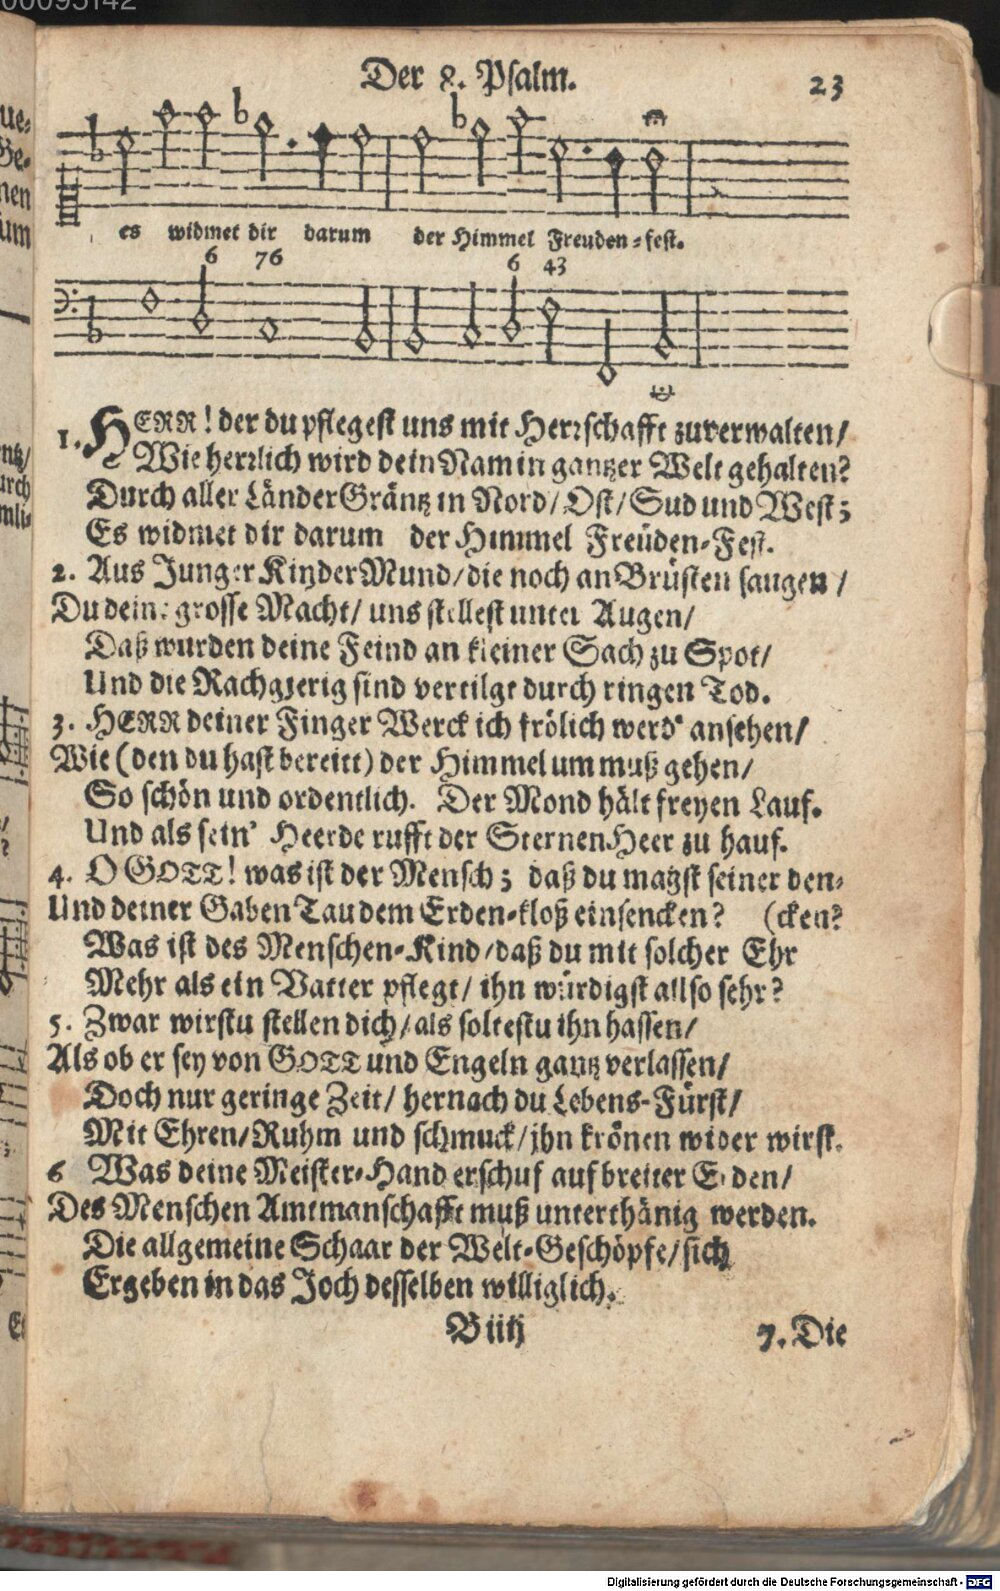 00095142
Der 8. Psalm.
23
es widmet dir darum der Himmel Freuden-fest.
6 76 6 43
1. HERR! der du pflegest uns mit Herrschafft zuverwalten/
Wie herrlich wird dein Nam in gantzer Welt gehalten?
Durch aller Länder Gräntz in Nord/ Ost/ Sud und West;
Es widmet dir darum der Himmel Freüden-Fest.
2. Aus Junger Kinder Mund/ die noch an Brüsten saugen/
Du deine grosse Macht/ uns stellest unter Augen/
Daß wurden deine Feind an kleiner Sach zu Spot/
Und die Rachgierig sind vertilgt durch ringen Tod.
3. HERR deiner Finger Werck ich frölich werd' ansehen/
Wie (den du hast bereitt) der Himmel um muß gehen/
So schön und ordentlich. Der Mond hält freyen Lauf.
Und als sein' Heerde rufft der Sternen Heer zu hauf.
4. O GOTT! was ist der Mensch; daß du magst seiner den-
Und deiner Gaben Tau dem Erden-kloß einsencken? (cken?
Was ist des Menschen-Kind/ daß du mit solcher Ehr
Mehr als ein Vatter pflegt/ ihn würdigst allso sehr?
5. Zwar wirstu stellen dich/ als soltestu ihn hassen/
Als ob er sey von GOTT und Engeln gantz verlassen/
Doch nur geringe Zeit/ hernach du Lebens-Fürst/
Mit Ehren/ Ruhm und schmuck/ ihn krönen wider wirst.
6 Was deine Meister-Hand erschuf auf breiter Erden/
Des Menschen Amtmanschafft muß unterthänig werden.
Die allgemeine Schaar der Welt-Geschöpfe/ sich
Ergeben in das Joch desselben williglich.
B iiij
7. Die
Digitalisierung gefördert durch die Deutsche Forschungsgemeinschaft - DFG